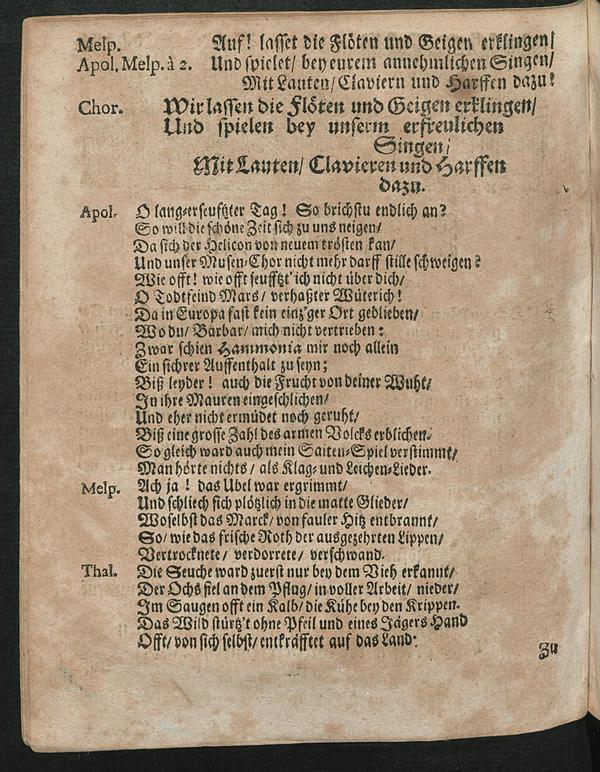 Melp. Auf! lasset die Flöten und Geigen erklingen/
Apol. Melp. à 2. Und spielet/ bey eurem annehmlichen Singen/
Mit Lauten/ Claviern und Harffen dazu!
Chor. Wir lassen die Flöten und Geigen erklingen/
Und spielen bey unserm erfreulichen
Singen/
Mit Lauten/ Clavieren und Harffen
dazu.
Apol. O lang-erseufzter Tag! So brichstu endlich an?
So will die schöne Zeit sich zu uns neigen/
Da sich der Helicon von neuem trösten kan/
Und unser Musen-Chor nicht mehr darff stille schweigen?
Wie offt! wie offt seufftzt' ich nicht über dich/
O Todtfeind Mars/ verhaßter Wüterich!
Da in Europa fast kein einz'ger Ort geblieben/
Wo du/ Barbar/ mich nicht vertrieben:
Zwar schien Hammonia mir noch allein
Ein sichrer Auffenthalt zu seyn;
Biß leyder! auch die Frucht von deiner Wuht/
In ihre Mauren eingeschlichen/
Und eher nicht ermüdet noch geruht/
Biß eine grosse Zahl des armen Volcks erblichen.
So gleich ward auch mein Saiten-Spiel verstimmt/
Man hörte nichts/ als Klag- und Leichen-Lieder.
Melp. Ach ja! das Ubel war ergrimmt/
Und schliech sich plötzlich in die matte Glieder/
Woselbst das Marck/ von fauler Hitz entbrannt/
So/ wie das frische Roth der ausgezehrten Lippen/
Vertrocknete/ verdorrete/ verschwand.
Thal. Die Seuche ward zuerst nur bey dem Vieh erkannt/
Der Ochs fiel an dem Pflug/ in voller Arbeit/ nieder/
Im Saugen offt ein Kalb/ die Kühe bey den Krippen.
Das Wild stürtz't ohne Pfeil und eines Jägers Hand
Offt/ von sich selbst/ entkräfftet auf das Land.
Zu